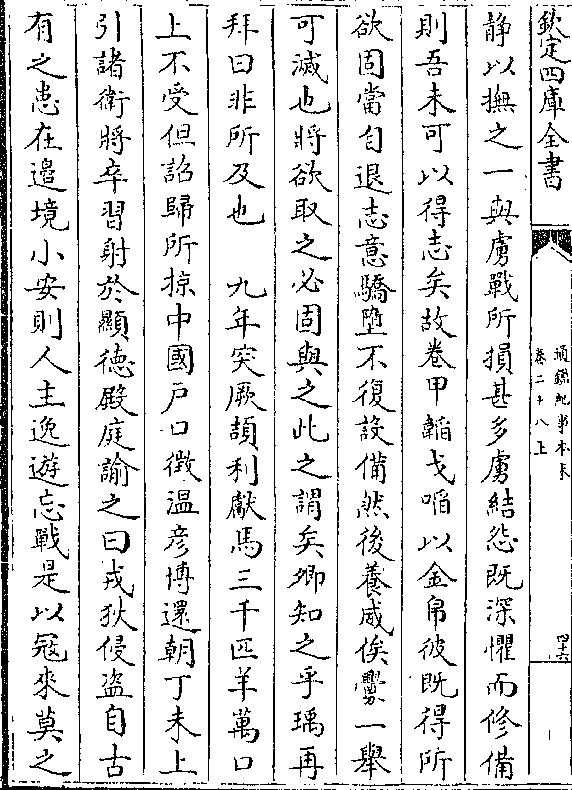 欽定四庫全書
通鑑紀事本末
卷二十八上
四十六
靜以撫之一與虜戰所損甚多虜結怨既深懼而修備
則吾未可以得志矣故卷甲韜戈啗以金帛彼既得所
欲固當自退志意驕墮不復設備然後養威俟釁一舉
可滅也將欲取之必固與之此之謂矣卿知之乎瑀再
拜曰非所及也　九年突厥頡利獻馬三千匹羊萬口
上不受但詔歸所掠中國戶口徵溫彥博還朝丁未上
引諸衛將卒習射於顯德殿庭諭之曰戎狄侵盜自古
有之患在邉境小安則人主逸遊忘戰是以冦來莫之